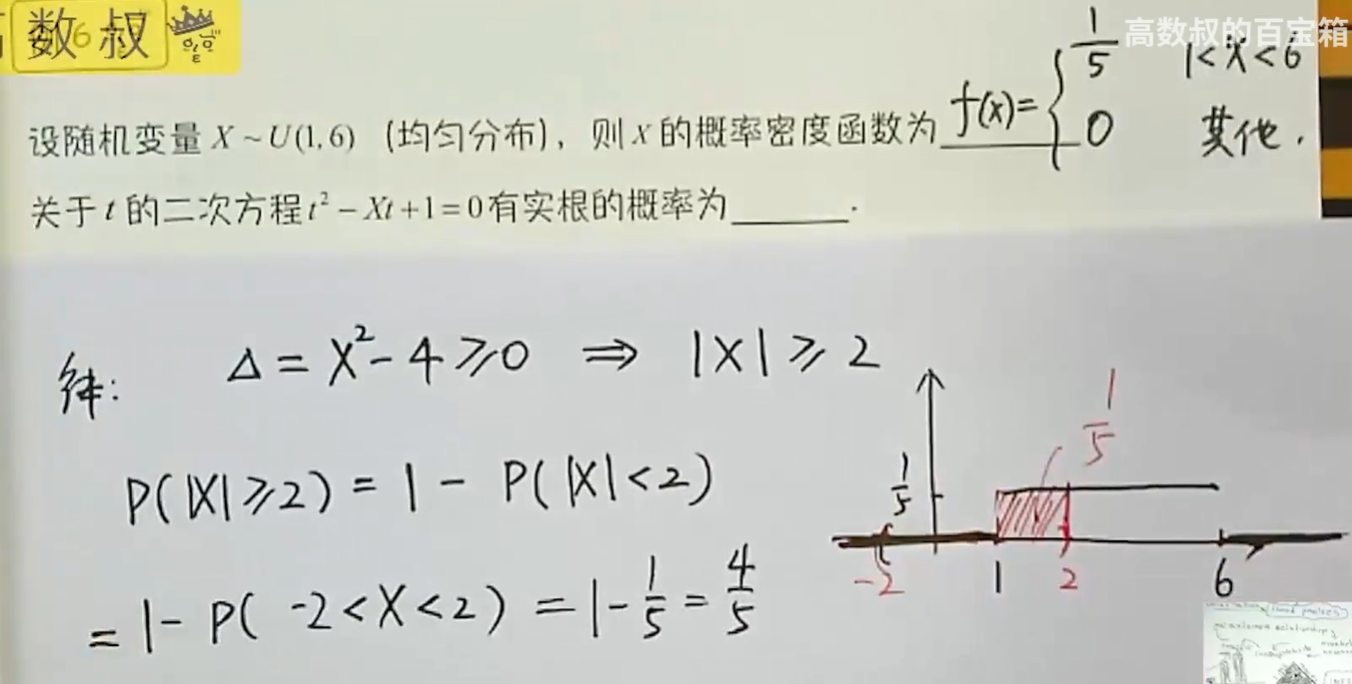 数叔
高数叔的百宝箱
设随机变量 X ~ U(1, 6) (均匀分布), 则 X 的概率密度函数为 f(x) = { 1/5 1<X<6
0 其他.
关于 t 的二次方程 t² − Xt + 1 = 0 有实根的概率为______.
解: Δ = X² − 4 ⩾ 0 ⇒ |X| ⩾ 2
P(|X| ⩾ 2) = 1 − P(|X| < 2)
= 1 − P( -2 < X < 2) = 1 − 1/5 = 4/5
1/5
1/5
-2 1 2 6